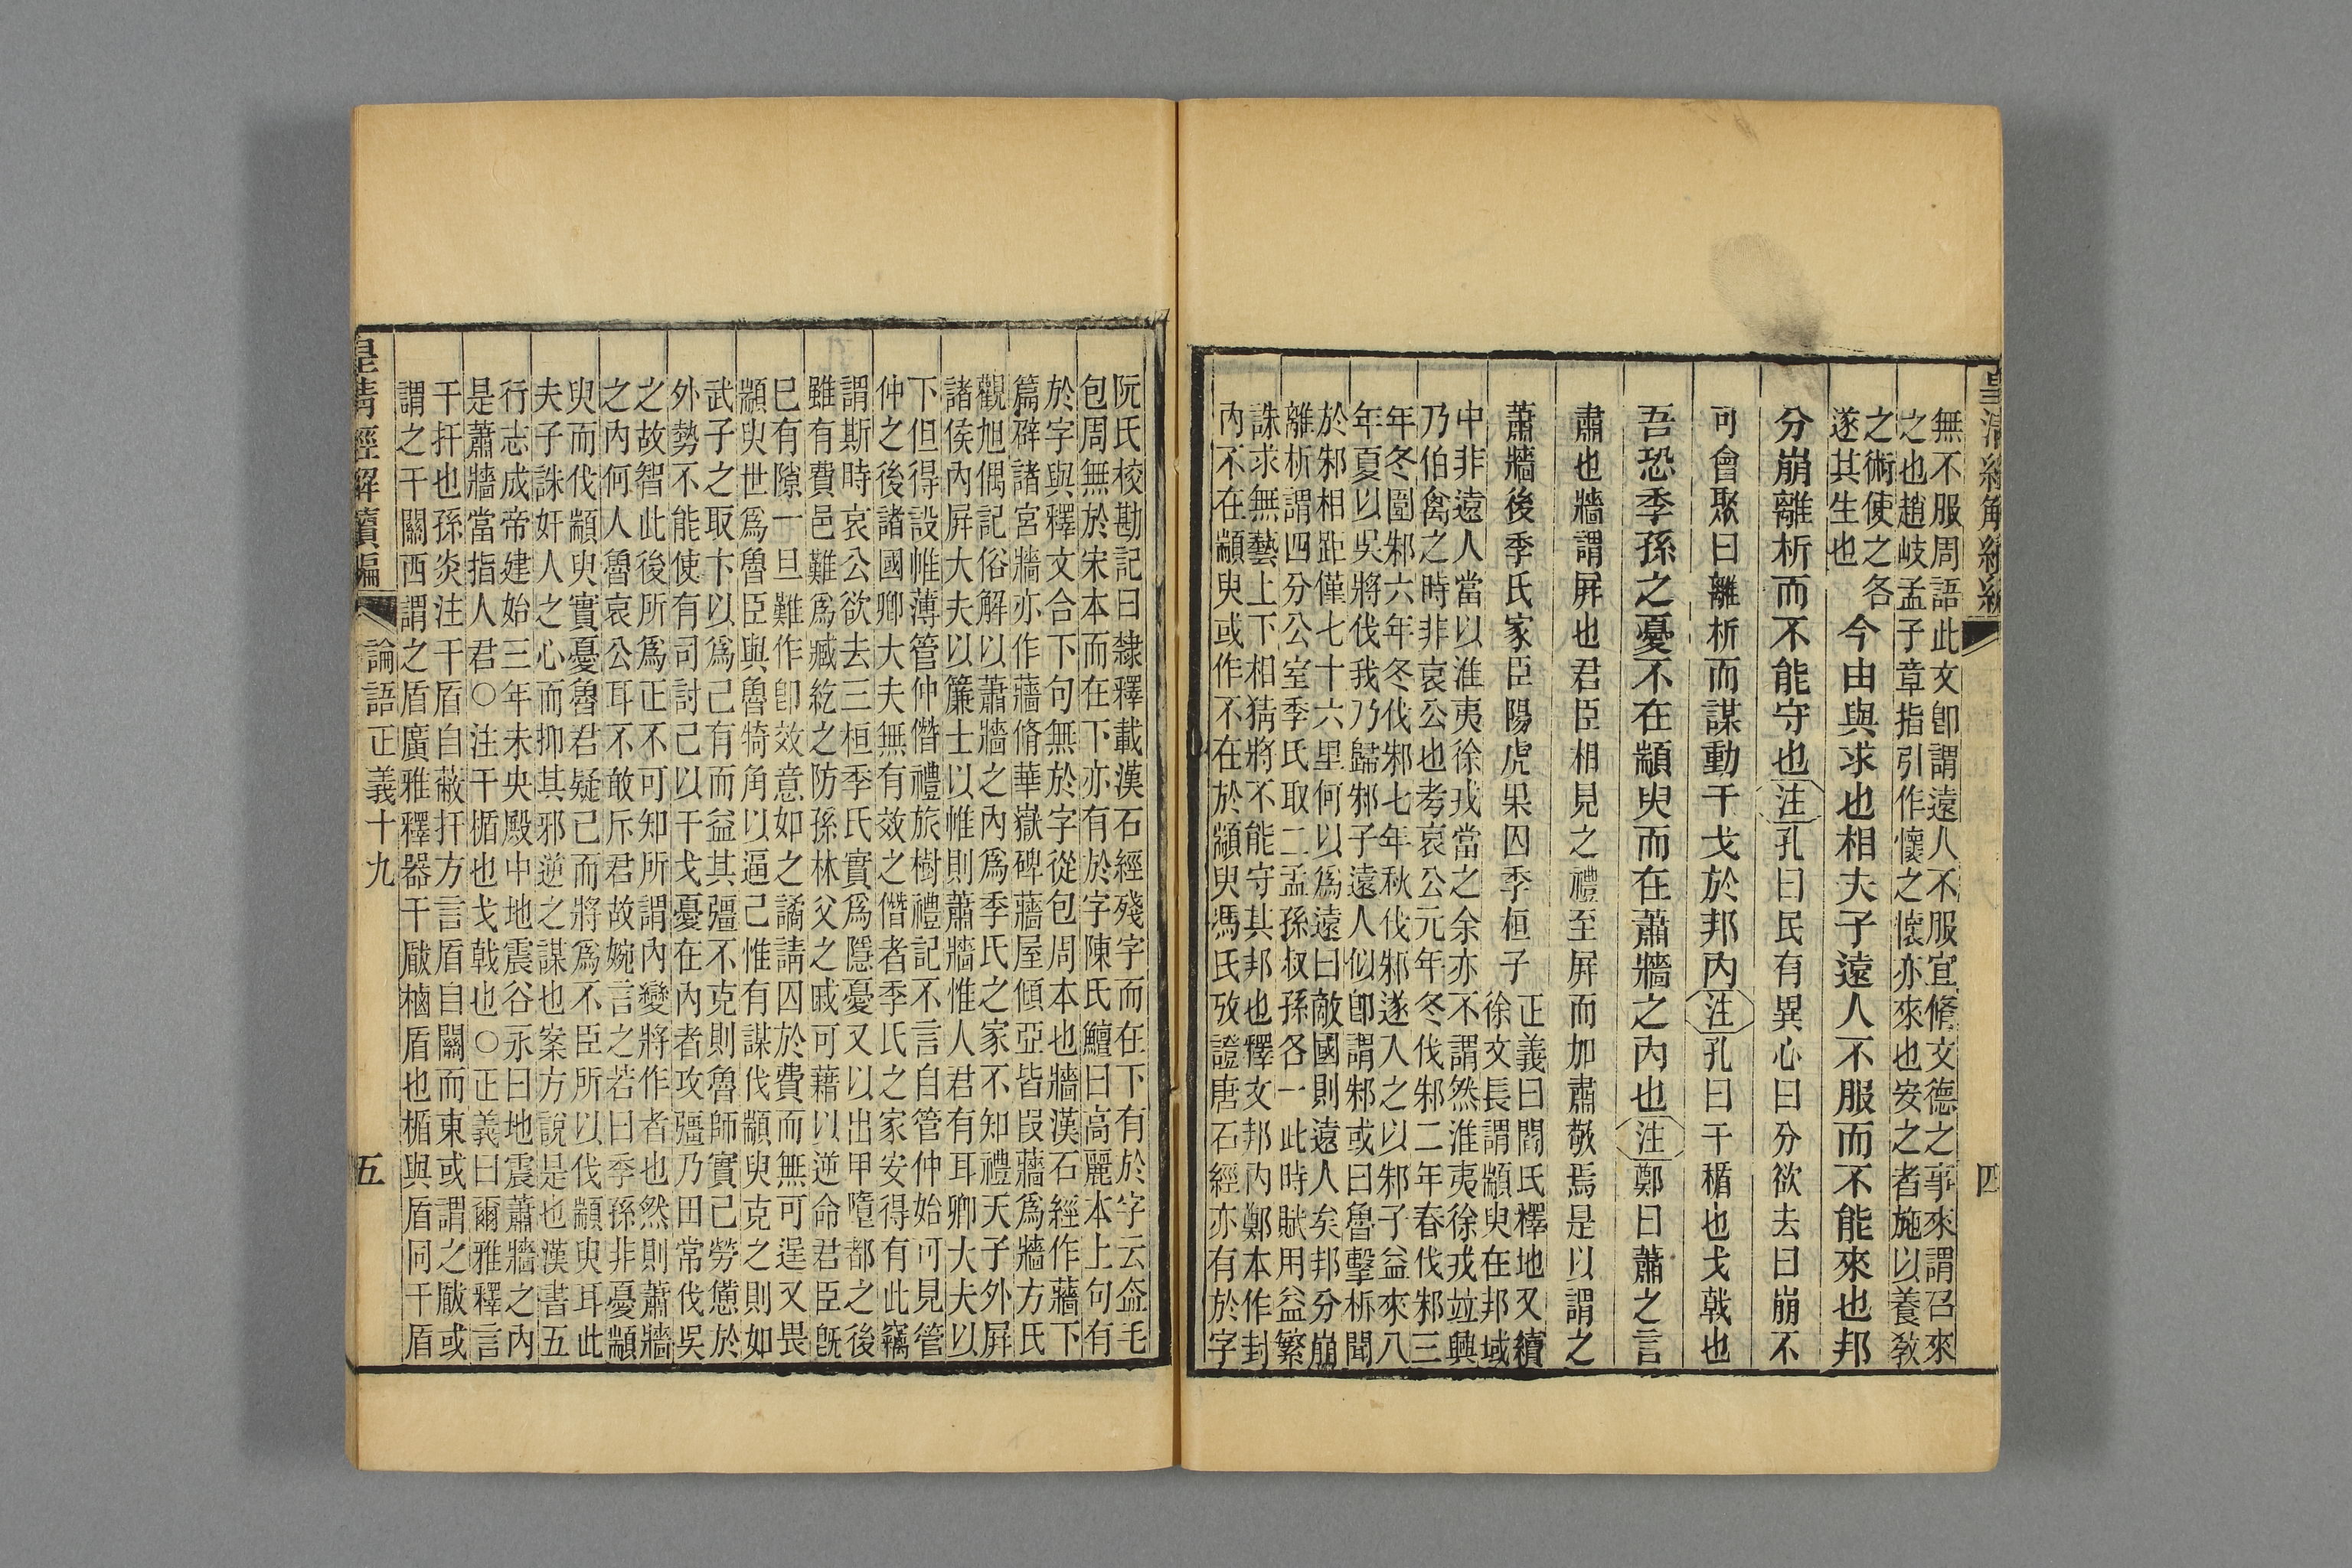 皇清經解續編
四
無不服周語此文卽謂遠人不服宜脩文德之事來謂召來
之也趙岐孟子章指引作懷之懷亦來也安之者施以養敎
之術使之各
遂其生也
今由與求也相夫子遠人不服而不能來也邦
分崩離析而不能守也注孔曰民有異心曰分欲去曰崩不
可會聚曰離析而謀動干戈於邦內注孔曰干楯也戈戟也
吾恐季孫之憂不在顓臾而在蕭牆之內也注鄭曰蕭之言
肅也牆謂屏也君臣相見之禮至屏而加肅敬焉是以謂之
蕭牆後季氏家臣陽虎果囚季桓子
正義曰閻氏釋地又續
徐文長謂顓臾在邦域
中非遠人當以淮夷徐戎當之余亦不謂然淮夷徐戎竝興
乃伯禽之時非哀公也考哀公元年冬伐邾二年春伐邾三
年冬圍邾六年冬伐邾七年秋伐邾遂入之以邾子益來八
年夏以吳將伐我乃歸邾子遠人似卽謂邾或曰魯擊柝聞
於邾相距僅七十六里何以爲遠曰敵國則遠人矣邦分崩
離析謂四分公室季氏取二孟孫叔孫各一此時賦用益繁
誅求無藝上下相猜將不能守其邦也釋文邦內鄭本作封
內不在顓臾或作不在於顓臾馮氏攷證唐石經亦有於字
阮氏校勘記曰隸釋載漢石經殘字而在下有於字云盍毛
包周無於宋本而在下亦有於字陳氏鱣曰高麗本上句有
於字與釋文合下句無於字從包周本也牆漢石經作蘠下
篇辟諸宮牆亦作蘠脩華嶽碑蘠屋傾亞皆叚蘠爲牆方氏
觀旭偶記俗解以蕭牆之內爲季氏之家不知禮天子外屏
諸侯內屏大夫以簾士以帷則蕭牆惟人君有耳卿大夫以
下但得設帷薄管仲僭禮旅樹禮記不言自管仲始可見管
仲之後諸國卿大夫無有效之僭者季氏之家安得有此竊
謂斯時哀公欲去三桓季氏實爲隱憂又以出甲墮都之後
雖有費邑難爲臧紇之防孫林父之戚可藉以逆命君臣旣
已有隙一旦難作卽效意如之譎請囚於費而無可逞又畏
顓臾世爲魯臣與魯犄角以逼己惟有謀伐顓臾克之則如
武子之取卞以爲己有而益其彊不克則魯師實己勞憊於
外勢不能使有司討己以干戈憂在內者攻彊乃田常伐吳
之故智此後所爲正不可知所謂內變將作者也然則蕭牆
之內何人魯哀公耳不敢斥君故婉言之若曰季孫非憂顓
臾而伐顓臾實憂魯君疑己而將爲不臣所以伐顓臾耳此
夫子誅奸人之心而抑其邪逆之謀也案方說是也漢書五
行志成帝建始三年未央殿中地震谷永曰地震蕭牆之內
是蕭牆當指人君〇注干楯也戈戟也〇正義曰爾雅釋言
干扞也孫炎注干盾自蔽扞方言盾自關而東或謂之瞂或
謂之干關西謂之盾廣雅釋器干瞂樐盾也楯與盾同干盾
皇清經解續編
論語正義十九
五